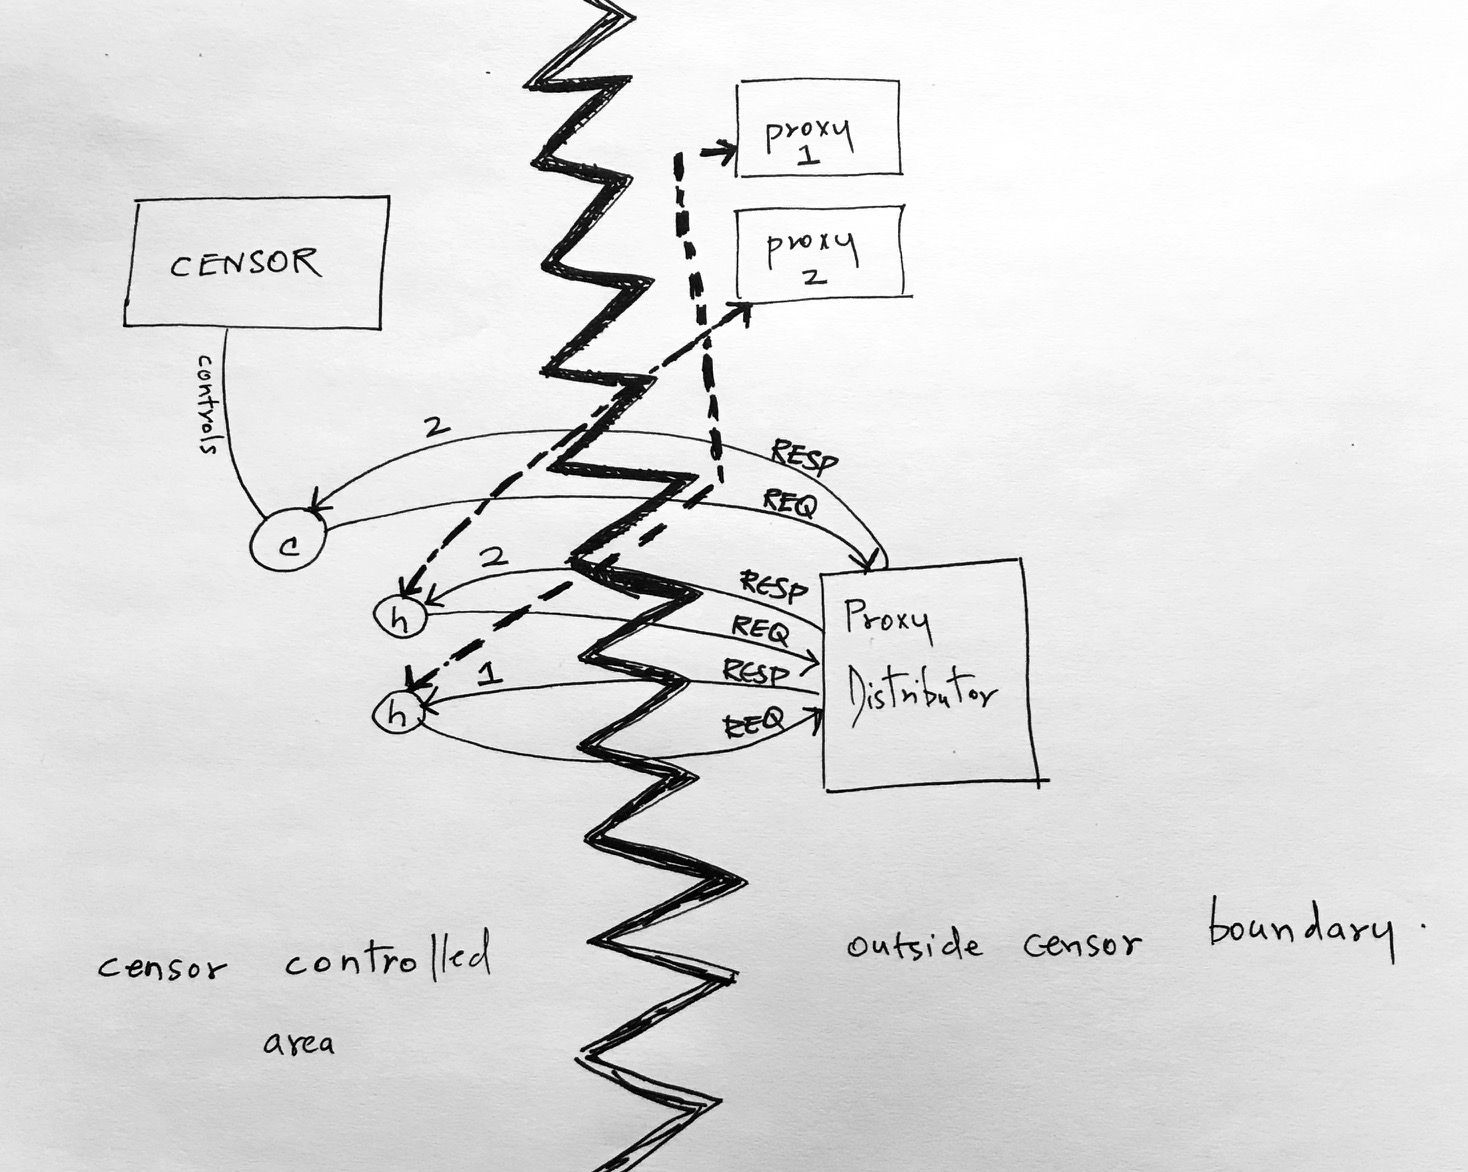 proxy
1
proxy
2
CENSOR
controls
2
RESP
REQ
c
2
RESP
h
REQ
Proxy
1
RESP
Distributor
h
REQ
censor controlled
area
outside censor boundary.